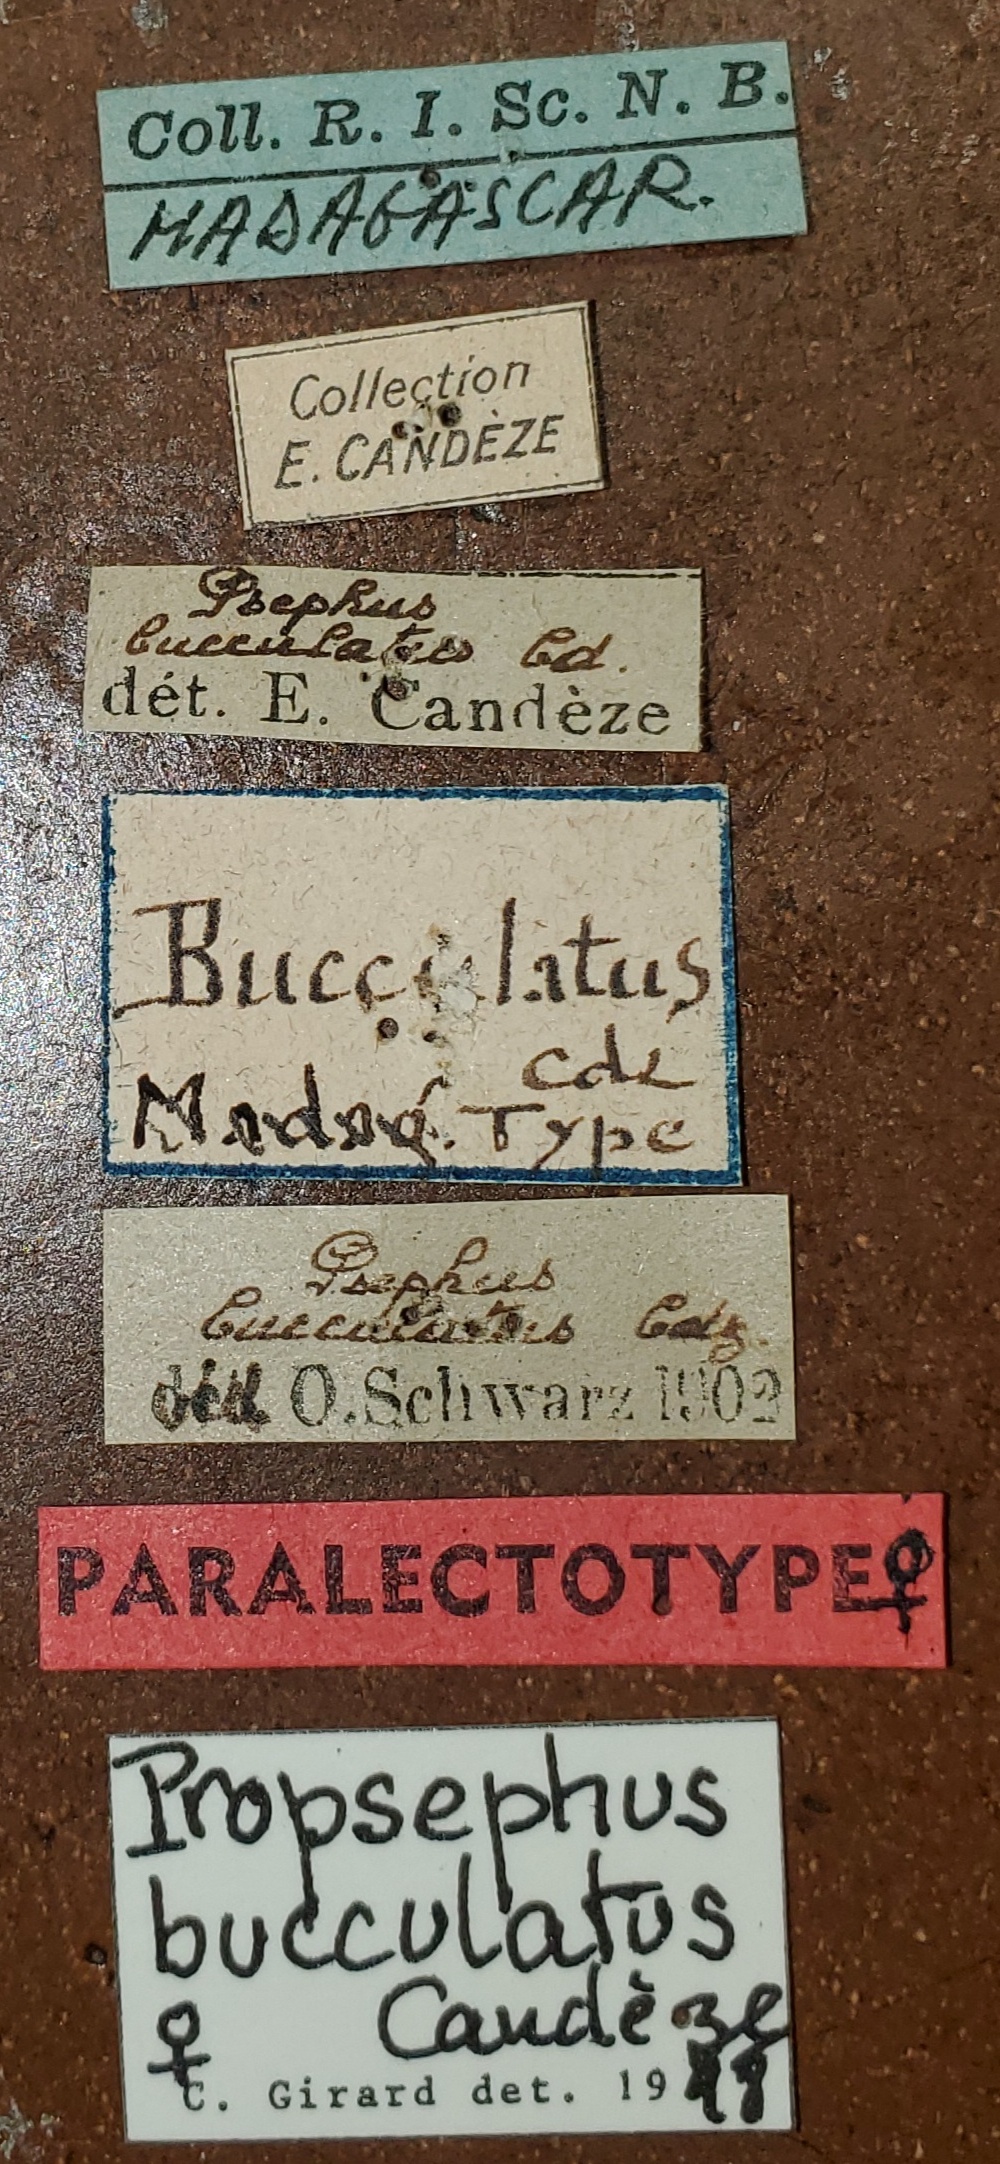 Coll. R. I. Sc. N. B.
MADAGASCAR.
Collection
E. CANDÈZE
Psephus
bucculatus Cd.
dét. E. Candèze
Bucculatus
cdz
Madag. Type
Psephus
bucculatus Cdz.
O. Schwarz 1902
PARALECTOTYPE ♀
Propsephus
bucculatus
♀ Candèze
C. Girard det. 19